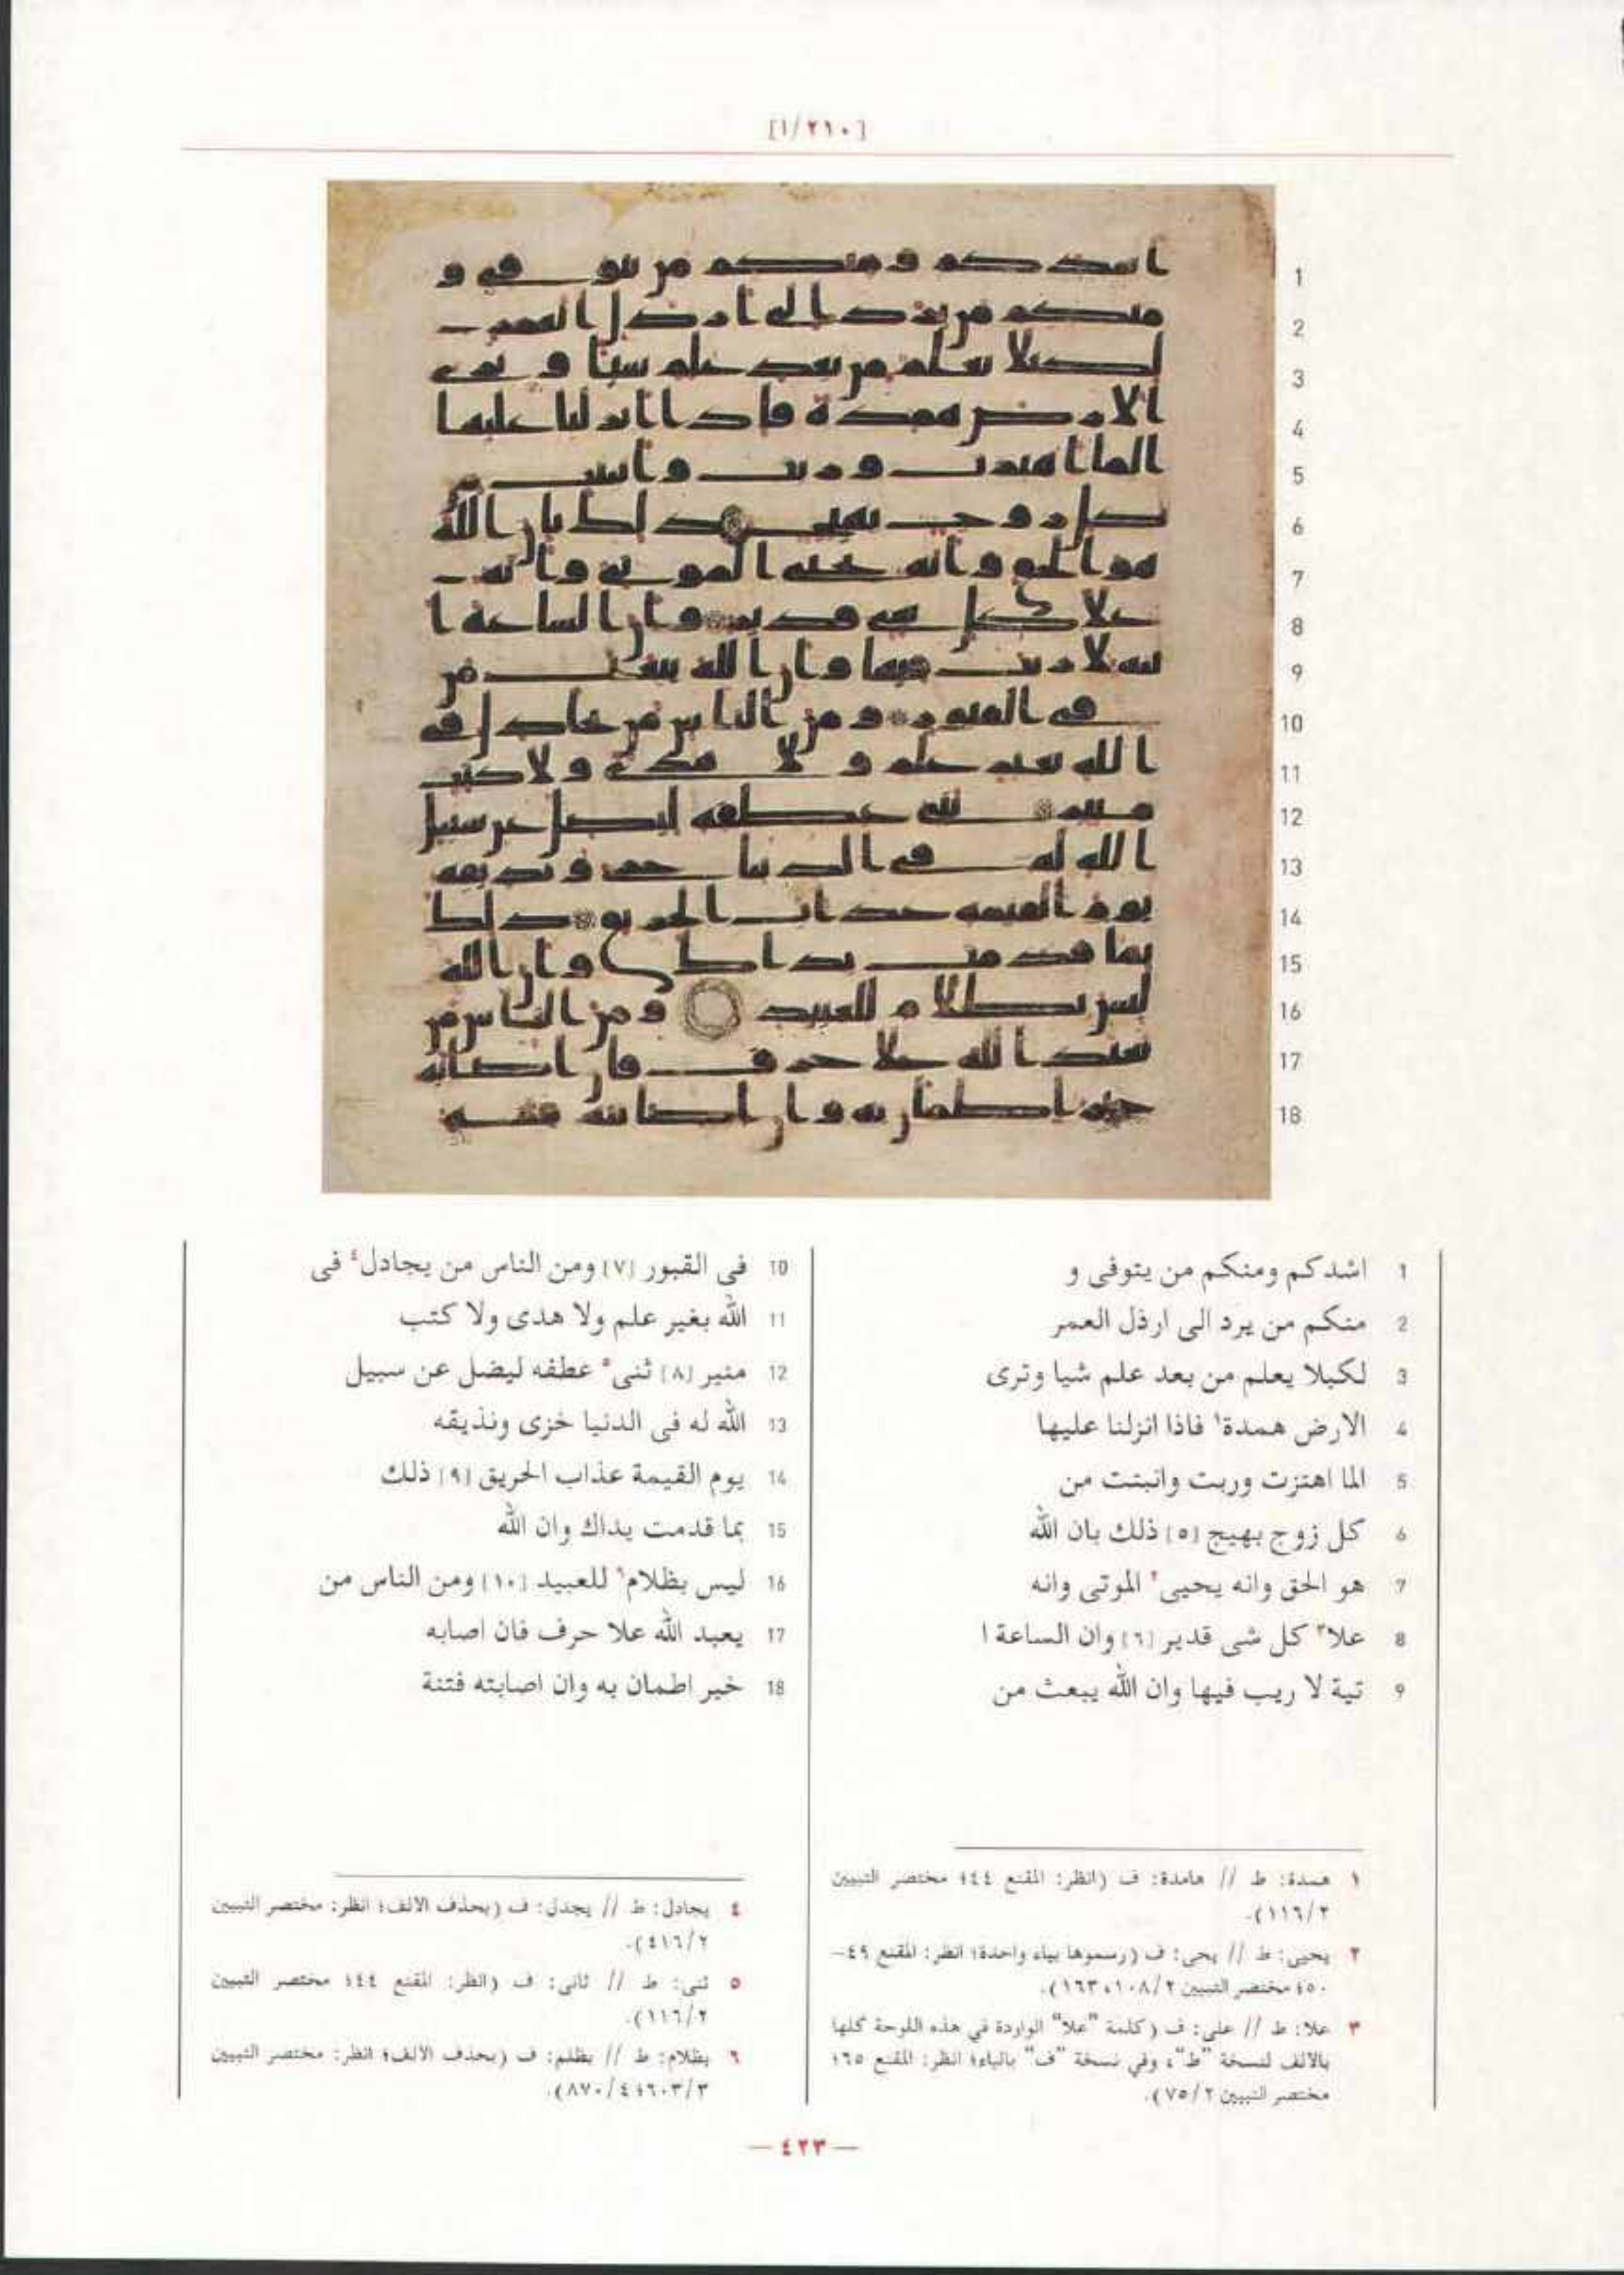 [١/٢١٠]
1 اشدكم ومنكم من يتوفى و
2 منكم من يرد الى ارذل العمر
3 لكيلا يعلم من بعد علم شيا وترى
4 الارض همدة١ فاذا انزلنا عليها
5 الما اهتزت وربت وانبتت من
6 كل زوج بهيج [٥] ذلك بان الله
7 هو الحق وانه يحيى٢ الموتى وانه
8 علا٣ كل شى قدير [٦] وان الساعة ا
9 تية لا ريب فيها وان الله يبعث من
10 فى القبور [٧] ومن الناس من يجادل٤ فى
11 الله بغير علم ولا هدى ولا كتب
12 منير [٨] ثنى٥ عطفه ليضل عن سبيل
13 الله له فى الدنيا خزى ونذيقه
14 يوم القيمة عذاب الحريق [٩] ذلك
15 بما قدمت يداك وان الله
16 ليس بظلام٦ للعبيد [١٠] ومن الناس من
17 يعبد الله علا حرف فان اصابه
18 خير اطمان به وان اصابته فتنة
١ همدة: ط // هامدة: ف (انظر: المقنع ٤٤؛ مختصر التبيين
٢/١١٦).
٢ يحيى: ط // يحى: ف (رسموها بياء واحدة؛ انظر: المقنع ٤٩-
٥٠؛ مختصر التبيين ٢/١٠٨، ١٦٣).
٣ علا: ط // على: ف (كلمة "علا" الواردة في هذه اللوحة كلها
بالالف لنسخة "ط"، وفي نسخة "ف" بالياء؛ انظر: المقنع ٦٥؛
مختصر التبيين ٢/٧٥).
٤ يجادل: ط // يجدل: ف (بحذف الالف؛ انظر: مختصر التبيين
٢/٤١٦).
٥ ثنى: ط // ثانى: ف (انظر: المقنع ٤٤؛ مختصر التبيين
٢/١١٦).
٦ بظلام: ط // بظلم: ف (بحذف الالف؛ انظر: مختصر التبيين
٣/٦٠٣؛ ٤/٨٧٠).
— ٤٢٣ —